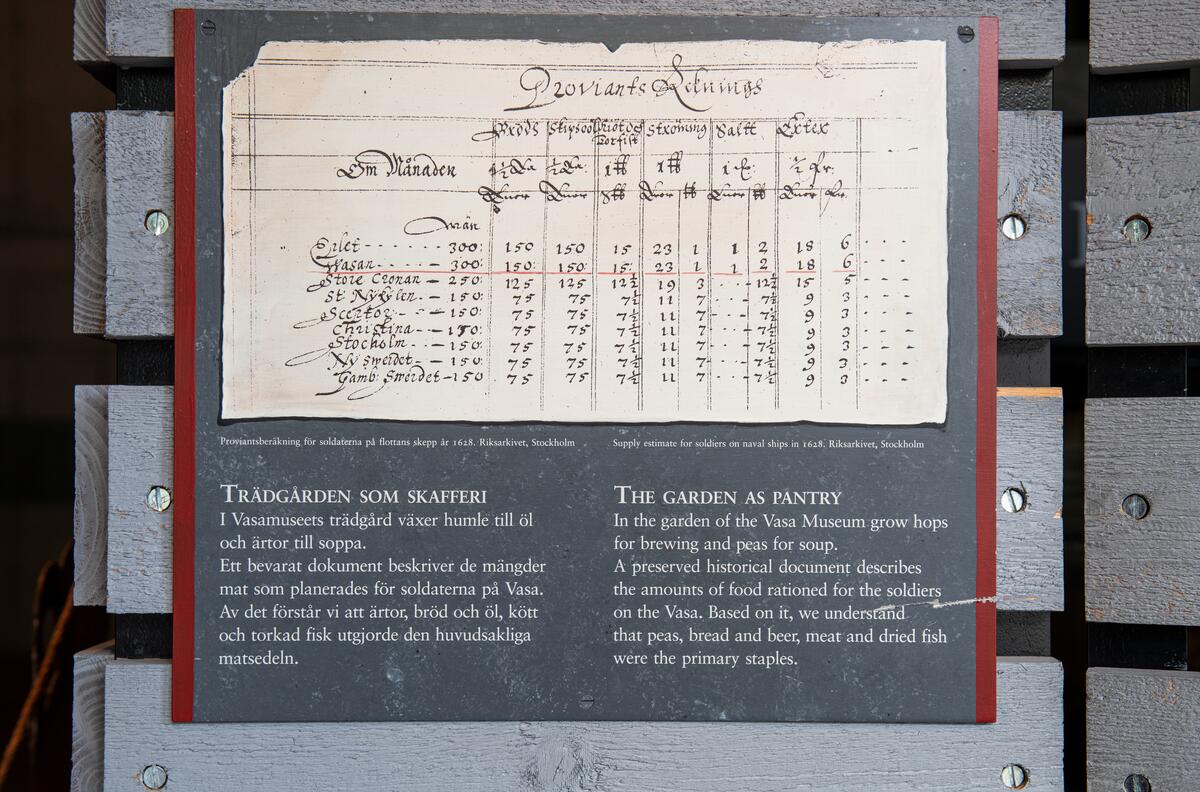 Proviants Reknings
Brödh Skipsööl Ströming Saltt Erter
Torfisk
Om Månaden
Män
Eilet 300: 150 150 15 23 1 1 2 18 6
Wasan 300: 150: 150: 15: 23 1 1 2 18 6
Store Cronan 250: 125 125 12½ 19 3 12½ 15 5
St: Nykylen 150: 75 75 7½ 11 7 7½ 9 3
Scepter 150: 75 75 7½ 11 7 7½ 9 3
Christina 150: 75 75 7½ 11 7 7½ 9 3
Stocholm 150: 75 75 7½ 11 7 7½ 9 3
Ny Swerdet 150: 75 75 7½ 11 7 7½ 9 3
Gamb: Swerdet 150 75 75 7½ 11 7 7½ 9 3
Proviantsberäkning för soldaterna på flottans skepp år 1628. Riksarkivet, Stockholm
Supply estimate for soldiers on naval ships in 1628. Riksarkivet, Stockholm
Trädgården som skafferi
I Vasamuseets trädgård växer humle till öl
och ärtor till soppa.
Ett bevarat dokument beskriver de mängder
mat som planerades för soldaterna på Vasa.
Av det förstår vi att ärtor, bröd och öl, kött
och torkad fisk utgjorde den huvudsakliga
matsedeln.
The garden as pantry
In the garden of the Vasa Museum grow hops
for brewing and peas for soup.
A preserved historical document describes
the amounts of food rationed for the soldiers
on the Vasa. Based on it, we understand
that peas, bread and beer, meat and dried fish
were the primary staples.